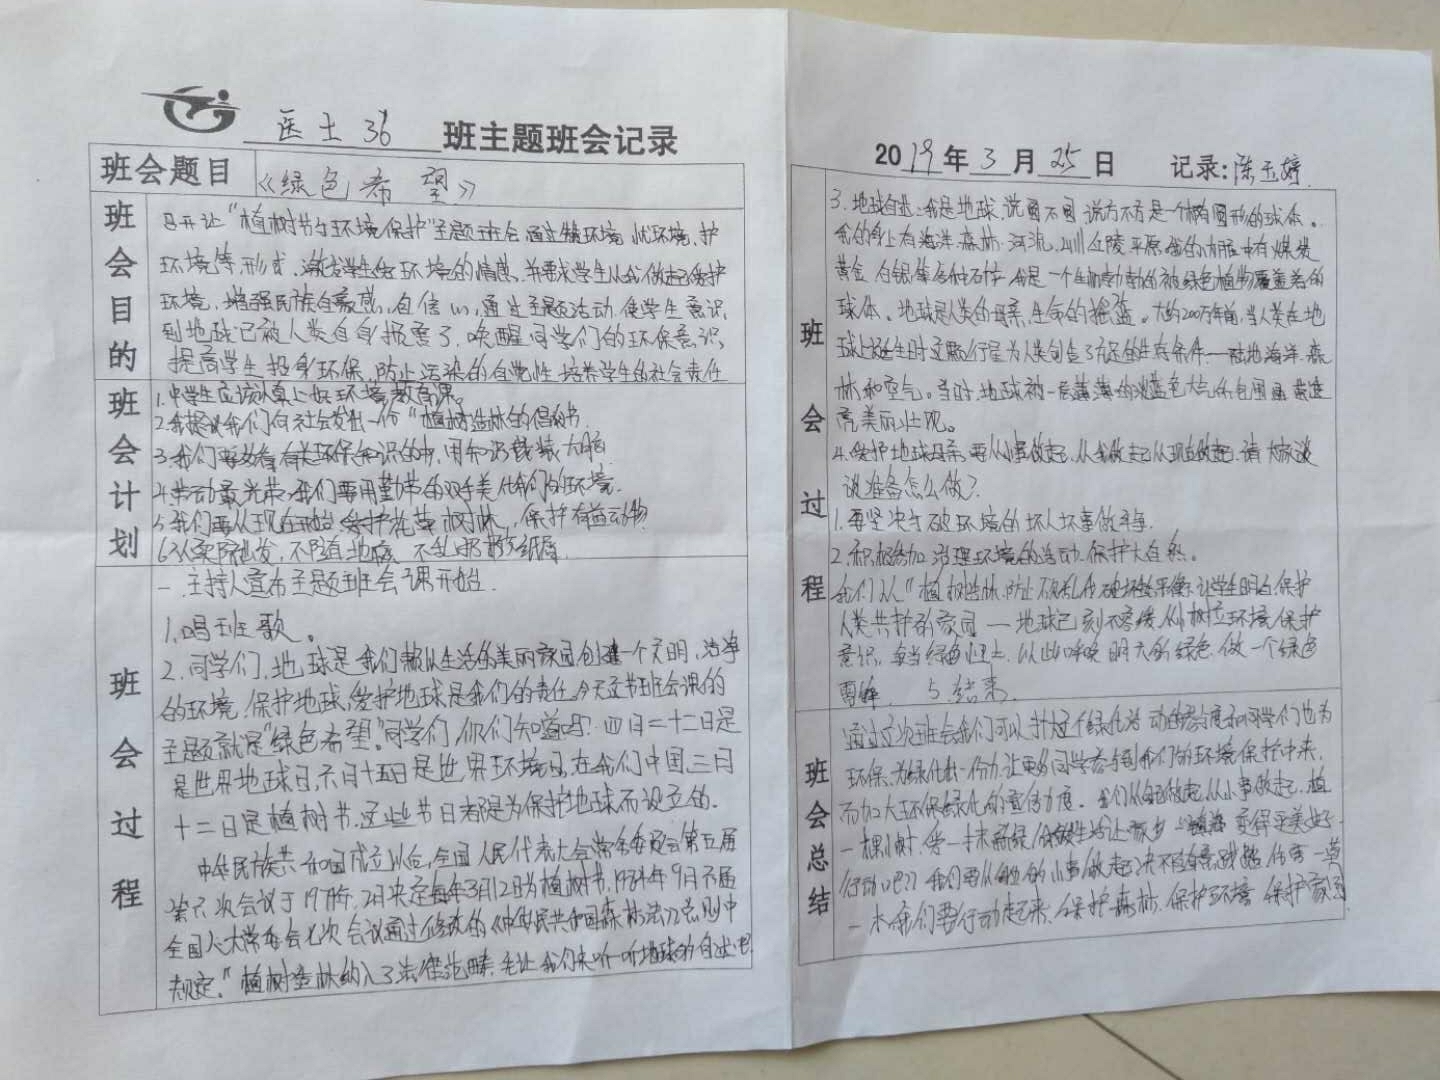 医士36 班主题班会记录
班会题目 《绿色希望》
班会目的
召开让“植树节与环境保护”主题班会通过 环境 忧环境、护
环境等形式，激发学生 环境的情感，并要求学生从我做起爱护
环境，增强民族自豪感，自信心，通过主题活动使学生意识
到地球已被人类自身损害了，唤醒同学们的环保意识，
提高学生投身环保、防止污染的自觉性，培养学生的社会责任
班会计划
1.中学生应该 上好环境教育课。
2.我提议我们向社会发出一份“植树造林的倡 书
3.我们要 有关环保知识的书，用知识载装大脑
4.劳动最光荣，我们要用勤 的双手美化我们的环境.
5.我们要从现在开始爱护花草树林，保护有益动物
6. 从实际出发，不随地 不乱扔
班会过程
一、主持人宣布主题班会课开始.
1.唱班歌。
2.同学们，地球是我们赖以生活的美丽家园创建一个文明，洁净
的环境，保护地球，爱护地球是我们的责任，今天这节班会课的
主题就是“绿色希望”同学们，你们知道吗?四月二十二日是
是世界地球日，六月十五日是世界环境日，在我们中国，三日
十二日是植树节，这些节日者都是为保护地球而设立的.
中华民族共和国成立以后，全国人民代表大会常务委员会第五届
第六次会议于1979年，2月决定每年3月12日为植树节，1984年9月六届
全国人大常委会七次会议通过修改的《中华人民共和国森林法》总则中
规定，“植树造林纳入了法律范畴，先让我们来听一听地球的自述吧
2019年3月25日 记录:陈玉婷
3.地球自述:我是地球，说圆不圆说方不方是一个椭圆形的球体。
我的身上有海洋、森林、河流、山川丘陵平原 我的 中有煤炭
黄金、白银等各种石 我是一个生机勃勃的被绿色植物覆盖着的
球体。地球是人类的母亲，生命的摇篮。大约200万年前，当人类在地
球上诞生时这颗行星为人类创造了充足的生存条件——陆地海洋、森
林和空气。当时，地球被一层薄薄的蓝色大气所包围
亮美丽壮观。
班会过程
4.爱护地球母亲要从小事做起，从我做起从现在做起，请大家谈
谈准备怎么做?
1.要坚决与破环境的坏人坏事做斗争.
2.积极参加治理环境的活动，保护大自然。
我们以“植树造林，防止 破坏 让学生明白保护
人类共 的家园——地球已刻不容缓，从 树立环境保护
意识，争当绿色卫士，以此呼唤明天的绿色，做一个绿色
5.结束
班会总结
通过这次班会我们可以 绿化活动的 同学们也为
环保，为绿化出一份力，让更多同学参与到我们的环境保护中来，
而加大环保绿化的宣传力度。我们从 做起，从小事做起，植
一棵小树， 一抹新绿， 生活让 变得更美好
行动吧!我们要从 的小事做起， 践踏 一草
一木我们要行动起来，保护森林，保护环境，保护家园